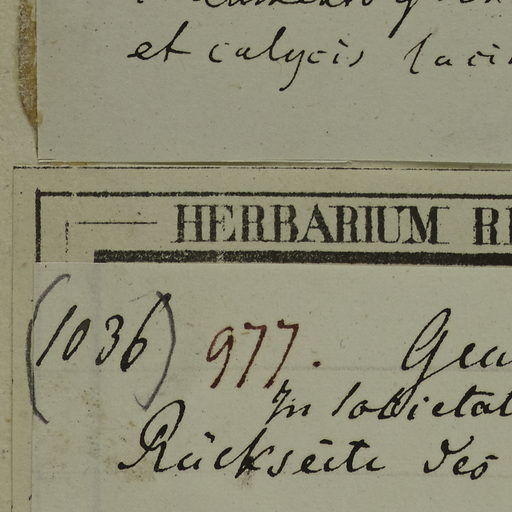 et calycis laci
HERBARIUM R
(1036) 977. Geu
In societat
Rückseite des